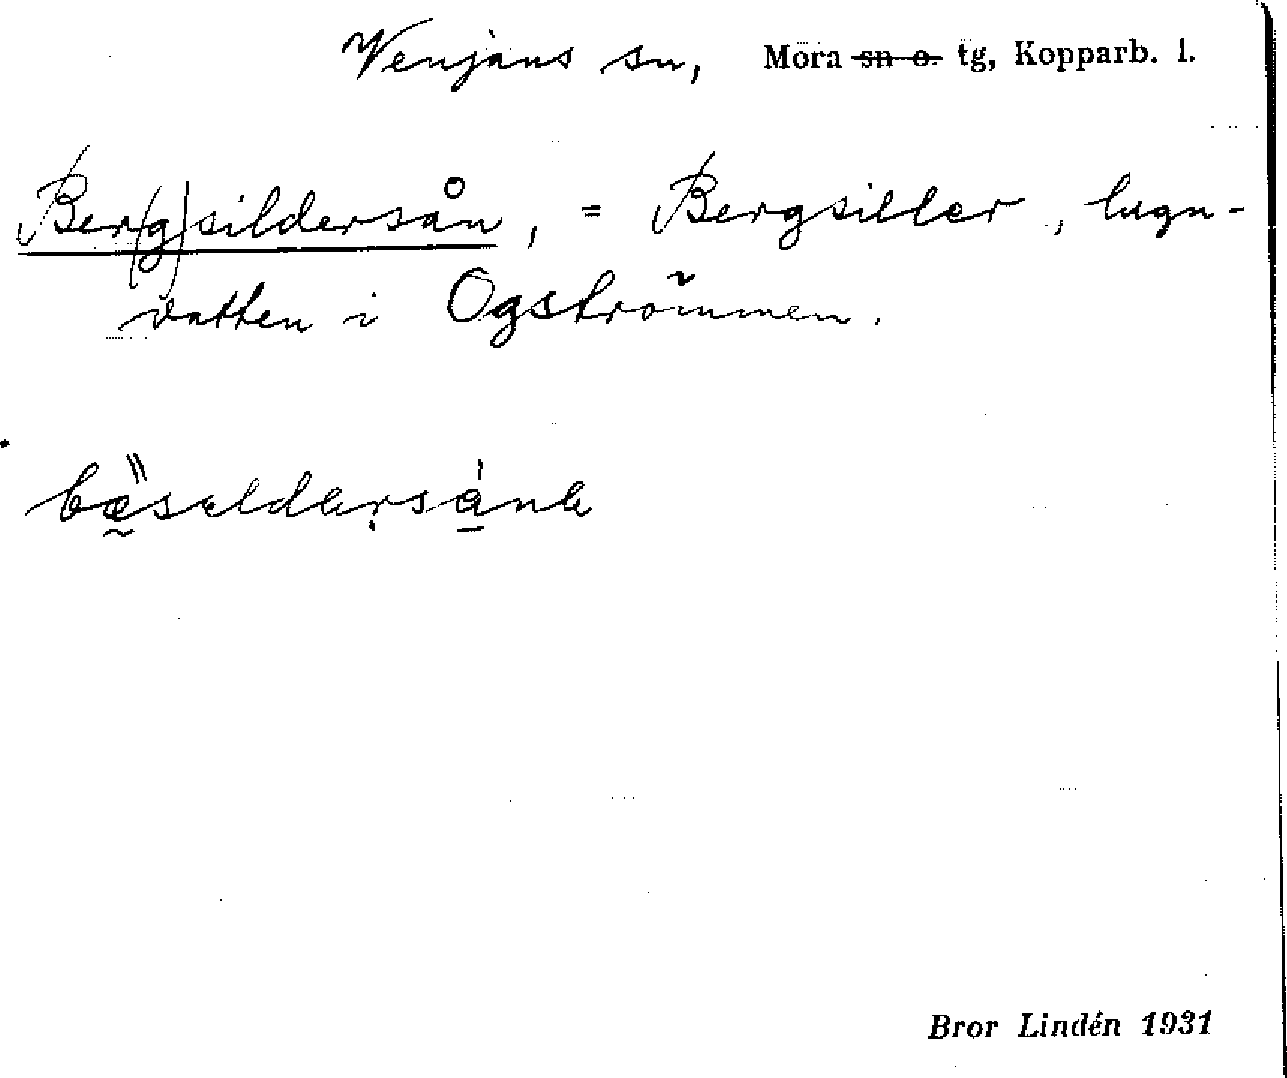 Venjans sn, Mora ~~sn o.~~ tg, Kopparb. l.
Ber(g)sildersån, = Bergsiller, lugn-
vatten i Ogströmmen.
Bror Lindén 1931